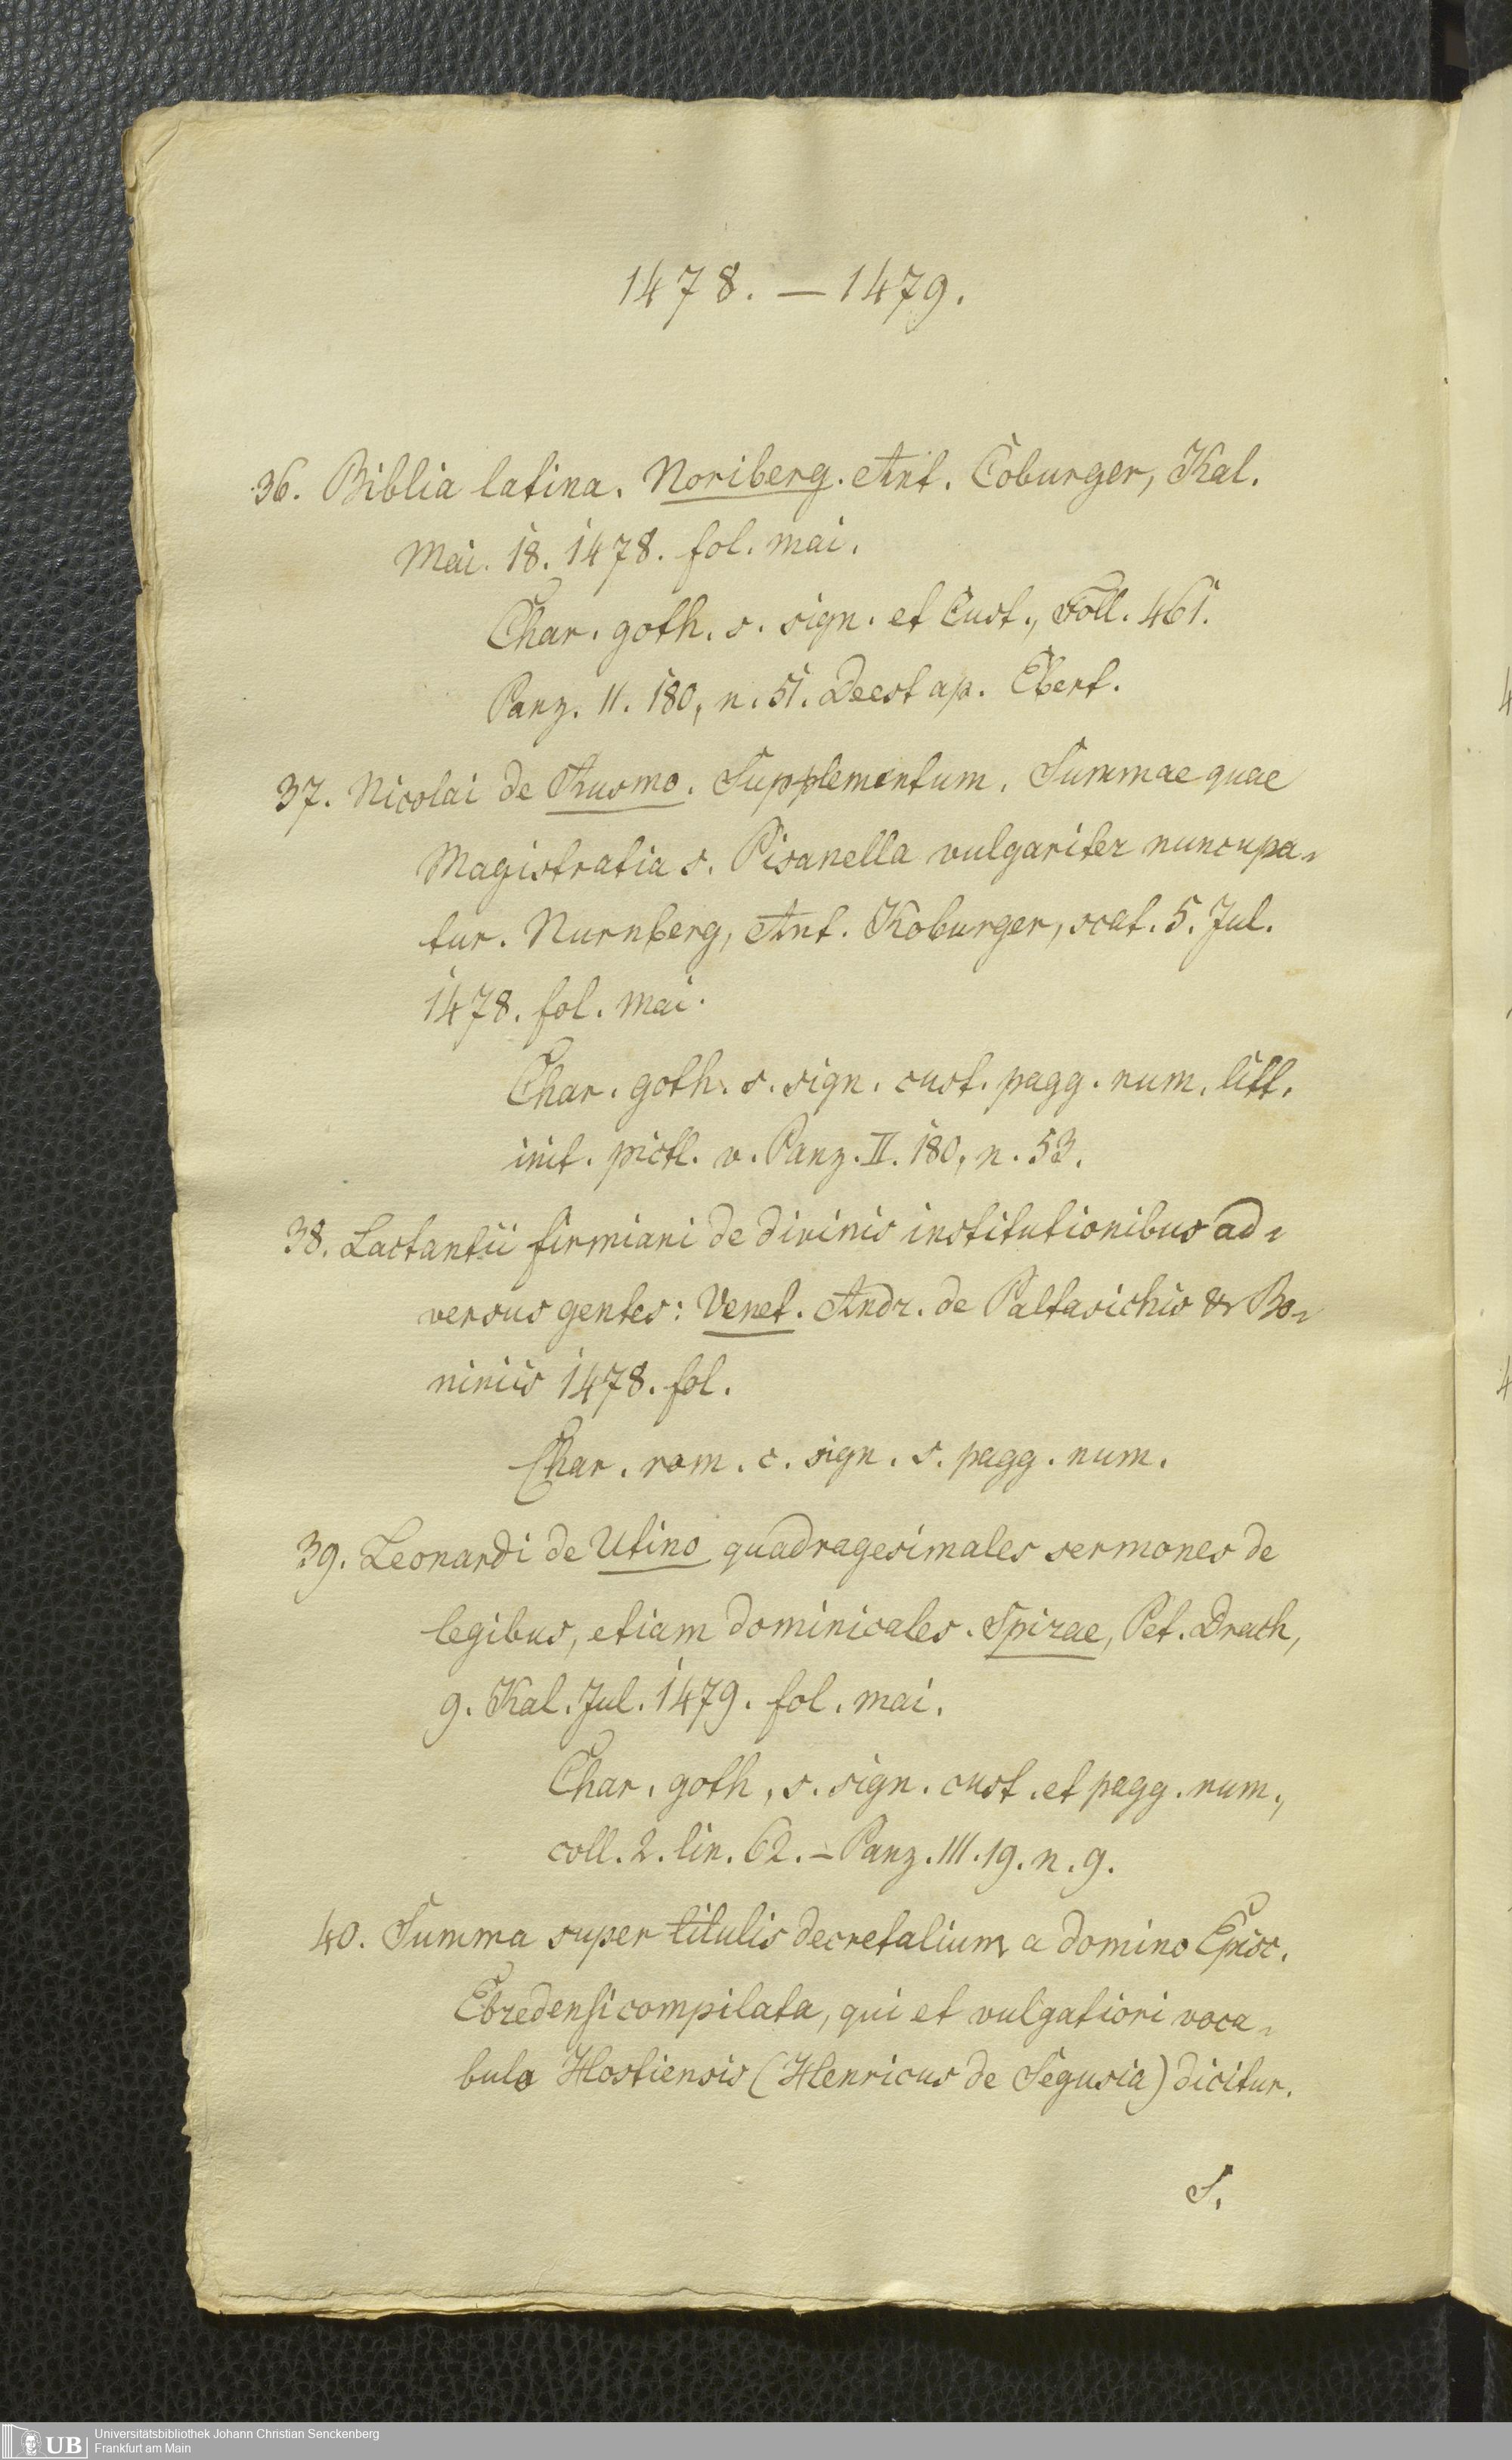 1478. — 1479.
36. Biblia latina. Noriberg. Ant. Coburger, Kal.
Mai. 18. 1478. fol. mai.
Char. goth. s. sign. et Cust., Foll. 461.
Panz. II. 180, n. 51. Deest ap. Ebert.
37. Nicolai de Ausmo. Supplementum. Summae quae
Magistratia s. Pisanella vulgariter nuncupa-
tur. Nurnberg, Ant. Koburger, scat. 5. Jul.
1478. fol. mai.
Char. goth. s. sign. cust. pagg. num. litt.
init. pictt. v. Panz. II. 180, n. 53.
38. Lactantii firmiani de divinis institutionibus ad-
versus gentes: Venet. Andr. de Paltasichis & Bo-
niniis 1478. fol.
Char. rom. c. sign. s. pagg. num.
39. Leonardi de Utino quadragesimales sermones de
legibus, etiam dominicales. Spirae, Pet. Drach,
9. Kal. Jul. 1479. fol. mai.
Char. goth, s. sign. cust. et pagg. num.,
coll. 2. lin. 62. – Panz. III. 19. n. 9.
40. Summa super titulis decretalium a domino Episc.
Ebredensi compilata, qui et vulgatiori voca-
bulo Hostiensis (Henricus de Segusia) dicitur.
S.
UB
Universitätsbibliothek Johann Christian Senckenberg
Frankfurt am Main